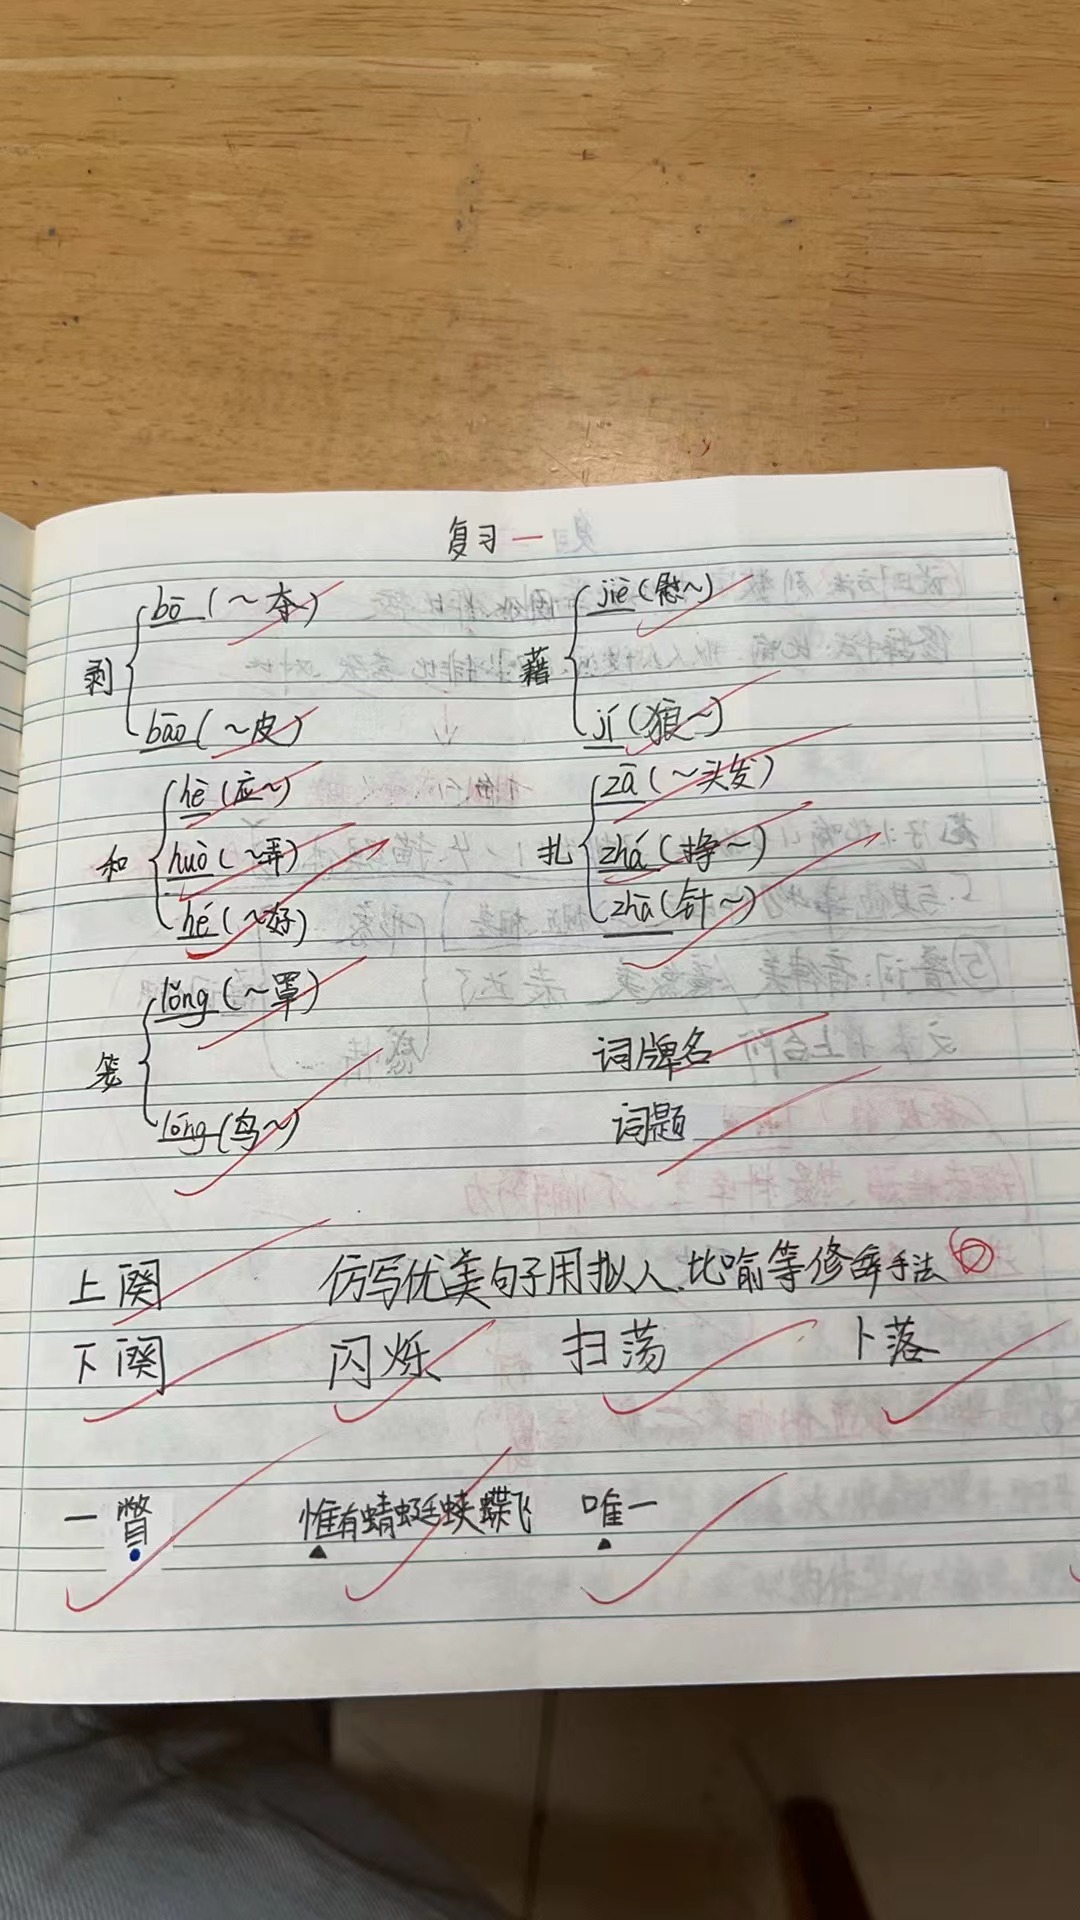 复习一
剥 bō（～夺） bāo（～皮）
藉 jiè（慰～） jí（狼～）
和 hè（应～） huò（～弄） hé（～好）
扎 zā（～头发） zhá（挣～） zhā（针～）
笼 lǒng（～罩） lóng（鸟～）
词牌名
词题
上阕 仿写优美句子用拟人、比喻等修辞手法
下阕 闪烁 扫荡 卜落
一瞥 惟有蜻蜓蛱蝶飞 唯一